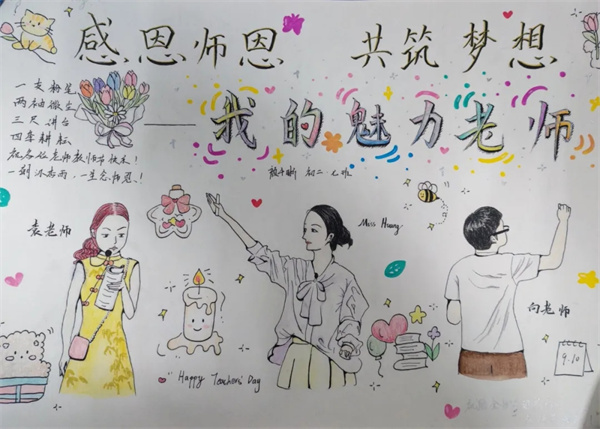 感恩师恩 共筑梦想
——我的魅力老师
一支粉笔
两袖微尘
三尺讲台
四季耕耘
祝各位老师教师节快乐!
一刻不忘雨,一生念师恩!
初二七班
袁老师
Miss Huang
向老师
"Happy Teachers' Day
9.10